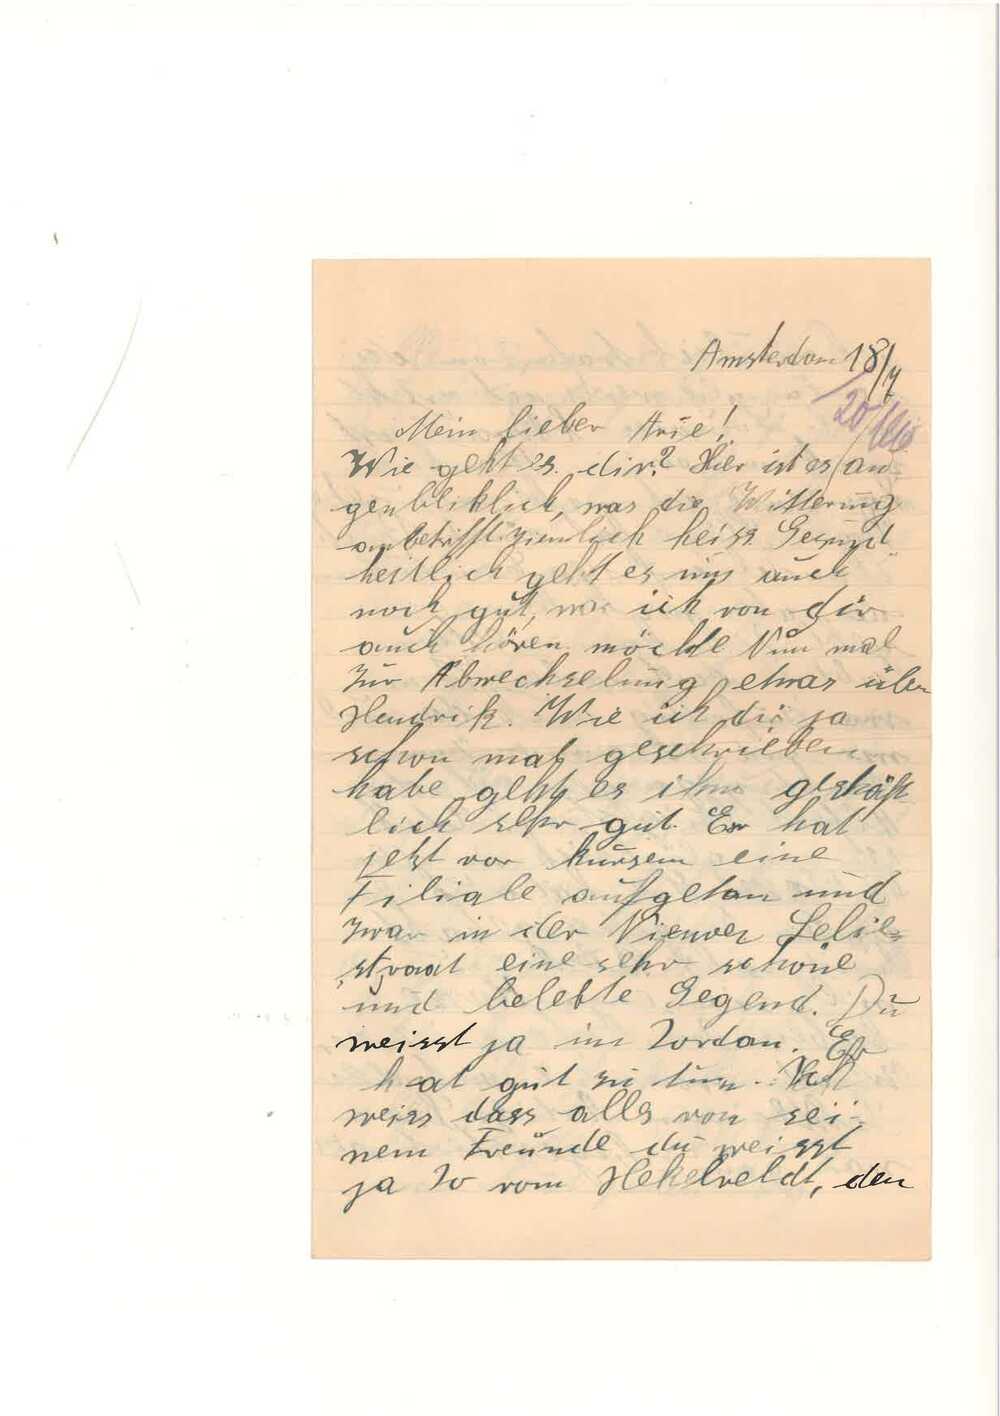 Amsterdam 18/7
Mein lieber Arie!
Wie geht es dir? Hier ist es au-
genbliklich, was die Witterung
anbetrifft ziemlich heiss. Gesund-
heitlich geht es uns auch
noch gut, was ich von dir
auch hören möchte Nun mal
zur Abwechselung etwas über
Hendrik. Wie ich dir ja
schon mal geschrieben
habe geht es ihm geschäft
lich sehr gut. Er hat
jetzt vor kursem eine
Filiale aufgetan und
zwar in der Nieuwe Lelie-
straat eine sehr schöne
und belebte Gegend. Du
weisst ja im Jordan. Er
hat gut zu tun. Ich
weiss dass alls von sei-
nem Freunde du weisst
ja Jo vom Hekelveldt, den